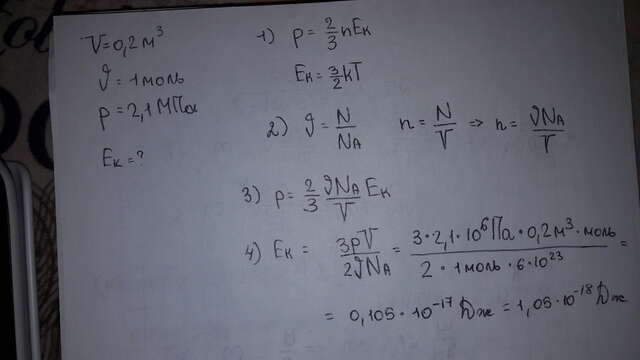 V=0,2м³
ν=1моль
p=2,1МПа
Eк=?
1) p=2/3 nEк
Eк=3/2 kT
2) ν=N/NA n=N/V => n=νNA/V
3) p=2/3 νNA/V Eк
4) Eк = 3pV/2νNA = 3·2,1·10⁶Па·0,2м³·моль/2·1моль·6·10²³ =
= 0,105·10⁻¹⁷Дж = 1,05·10⁻¹⁸Дж